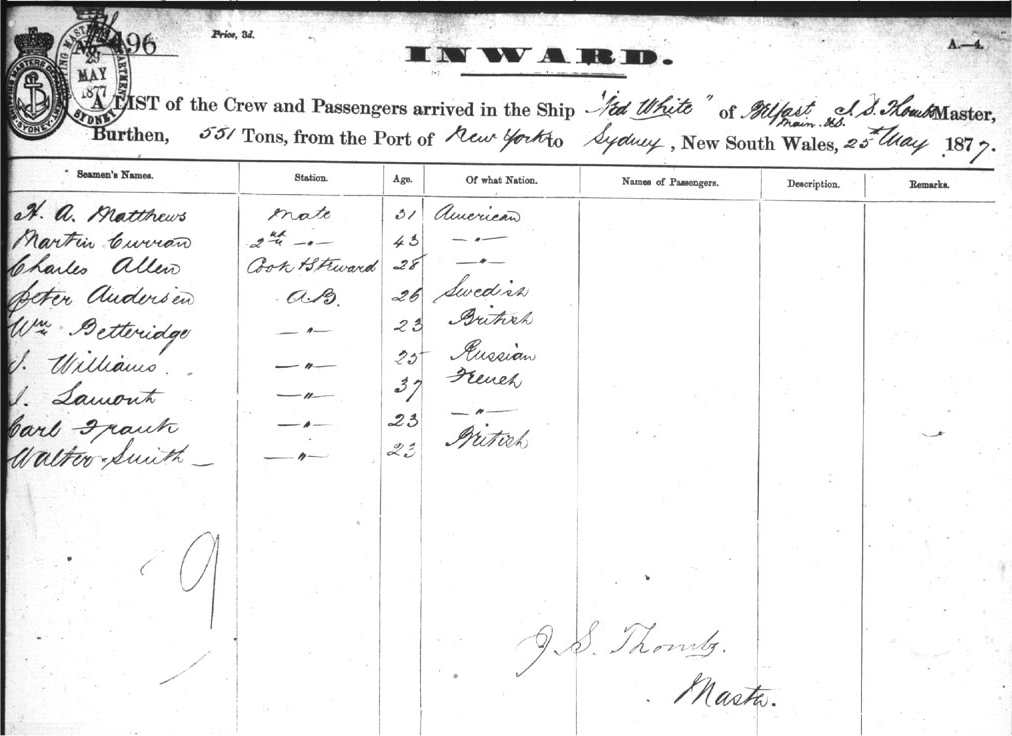 496
Price, 3d.
INWARD.
A.—4.
29
MAY
1877
SYDNEY
A LIST of the Crew and Passengers arrived in the Ship "Ned White" of Belfast J. S. Thombs Master,
Main. US.
Burthen, 551 Tons, from the Port of New York to Sydney, New South Wales, 25th May 1877.
Seamen's Names. Station. Age. Of what Nation. Names of Passengers. Description. Remarks.
H. A. Matthews Mate 31 American
Martin Curran 2nd —"— 43 —"—
Charles Allen Cook & Steward 28 —"—
Peter Andersen A.B. 26 Swedish
Wm Betteridge —"— 23 British
J. Williams —"— 25 Russian
J. Lamont —"— 37 French
Carl Frank —"— 23 —"—
Walter Smith —"— 23 British
9
J. S. Thombs.
Master.